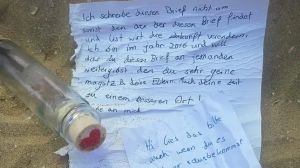 Ich schreibe diesen Brief nicht um
sonst den der der diesen Brief findet
und liest wird die Zukunft verändern.
Ich bin im Jahr 2016 und will
das du diesen Brief an jemanden
weitergibst den du sehr gerne
magst & Deine Zeit
zu einem besseren Ort!
an mich
Hi Lies das bitte
auch wenn du es